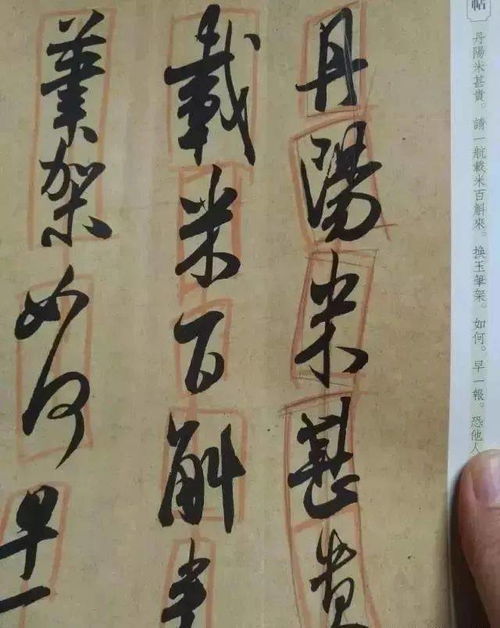 丹陽米甚貴
載米百斛來
筆架如何早一
帖
丹陽米甚貴。請一航載米百斛來。換玉筆架。如何。早一報。恐他人